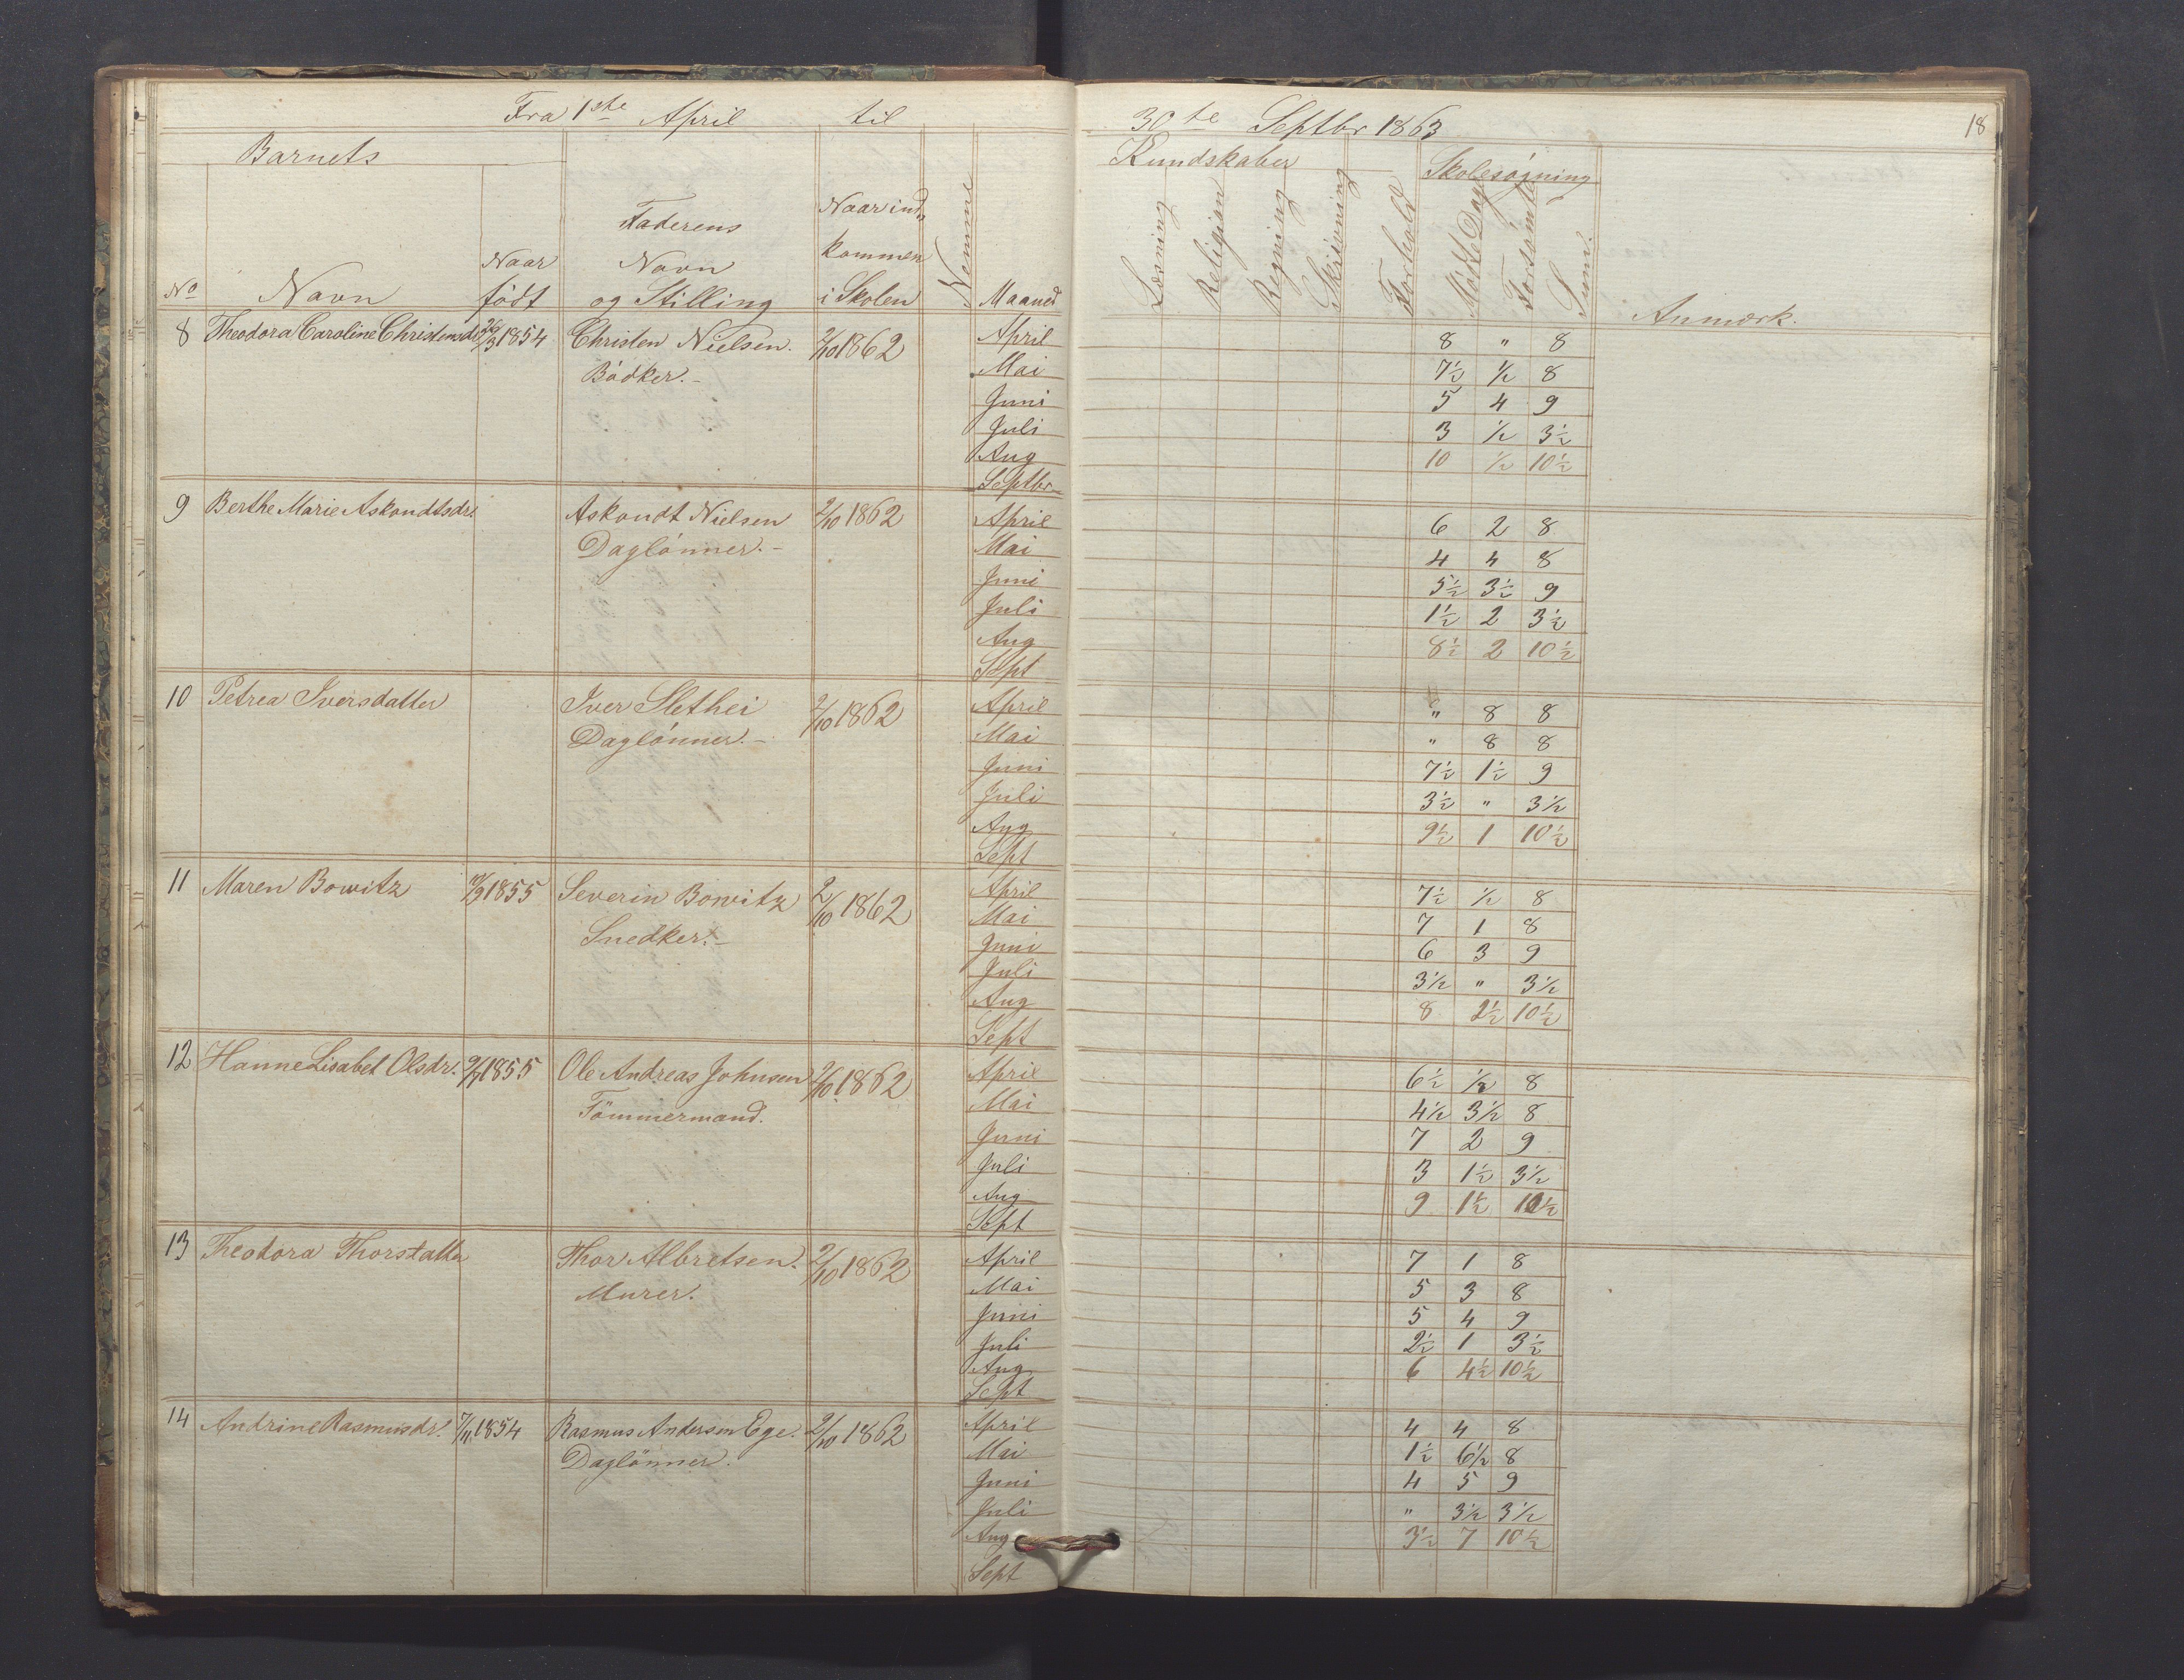 Fra 1ste April til 30te Septbr 1863 18
Barnets Kundskaber Skolesøgning
No Navn Naar født Faderens Navn og Stilling Naar ind- kommen i Skolen Nemme Maaned Læsning Religion Regning Skrivning Forhold Mødte Dage Forsømte Sum. Anmærk.
8 Theodora Caroline Christensdr 1854 Christen Nielsen. 2/10 1862 April 8 " 8
Bødker.- Mai 7½ ½ 8
Juni 5 4 9
Juli 3 ½ 3½
Aug 10 ½ 10½
Septbr
9 Berthe Marie Askoudtsdr. Askoudt Nielsen 2/10 1862 April 6 2 8
Daglønner.- Mai 4 4 8
Juni 5½ 3½ 9
Juli 1½ 2 3½
Aug 8½ 2 10½
Sept
10 Petrea Iversdatter Iver Slethei 2/10 1862 April " 8 8
Daglønner.- Mai " 8 8
Juni 7½ 1½ 9
Juli 3½ " 3½
Aug 9½ 1 10½
Sept
11 Maren Bowitz 1855 Severin Bowitz 2/10 1862 April 7½ ½ 8
Snedker.- Mai 7 1 8
Juni 6 3 9
Juli 3½ " 3½
Aug 8 2½ 10½
Sept
12 Hanne Lisabet Olsdr. 1855 Ole Andreas Johnsen 2/10 1862 April 6½ 8
Tömmermand. Mai 4½ 3½ 8
Juni 7 2 9
Juli 3 1½ 3½
Aug 9 1½ 10½
Sept
13 Theodora Thorsdatter Thor Albretsen. 2/10 1862 April 7 1 8
Murer. Mai 5 3 8
Juni 5 4 9
Juli 2½ 1 3½
Aug 6 4½ 10½
Sept
14 Andrine Rasmusdr. 7/11 1854 Rasmus Andersen Ege. 2/10 1862 April 4 4 8
Daglönner. Mai 1½ 6½ 8
Juni 4 5 9
Juli " 3½ 3½
Aug 3½ 7 10½
Sept